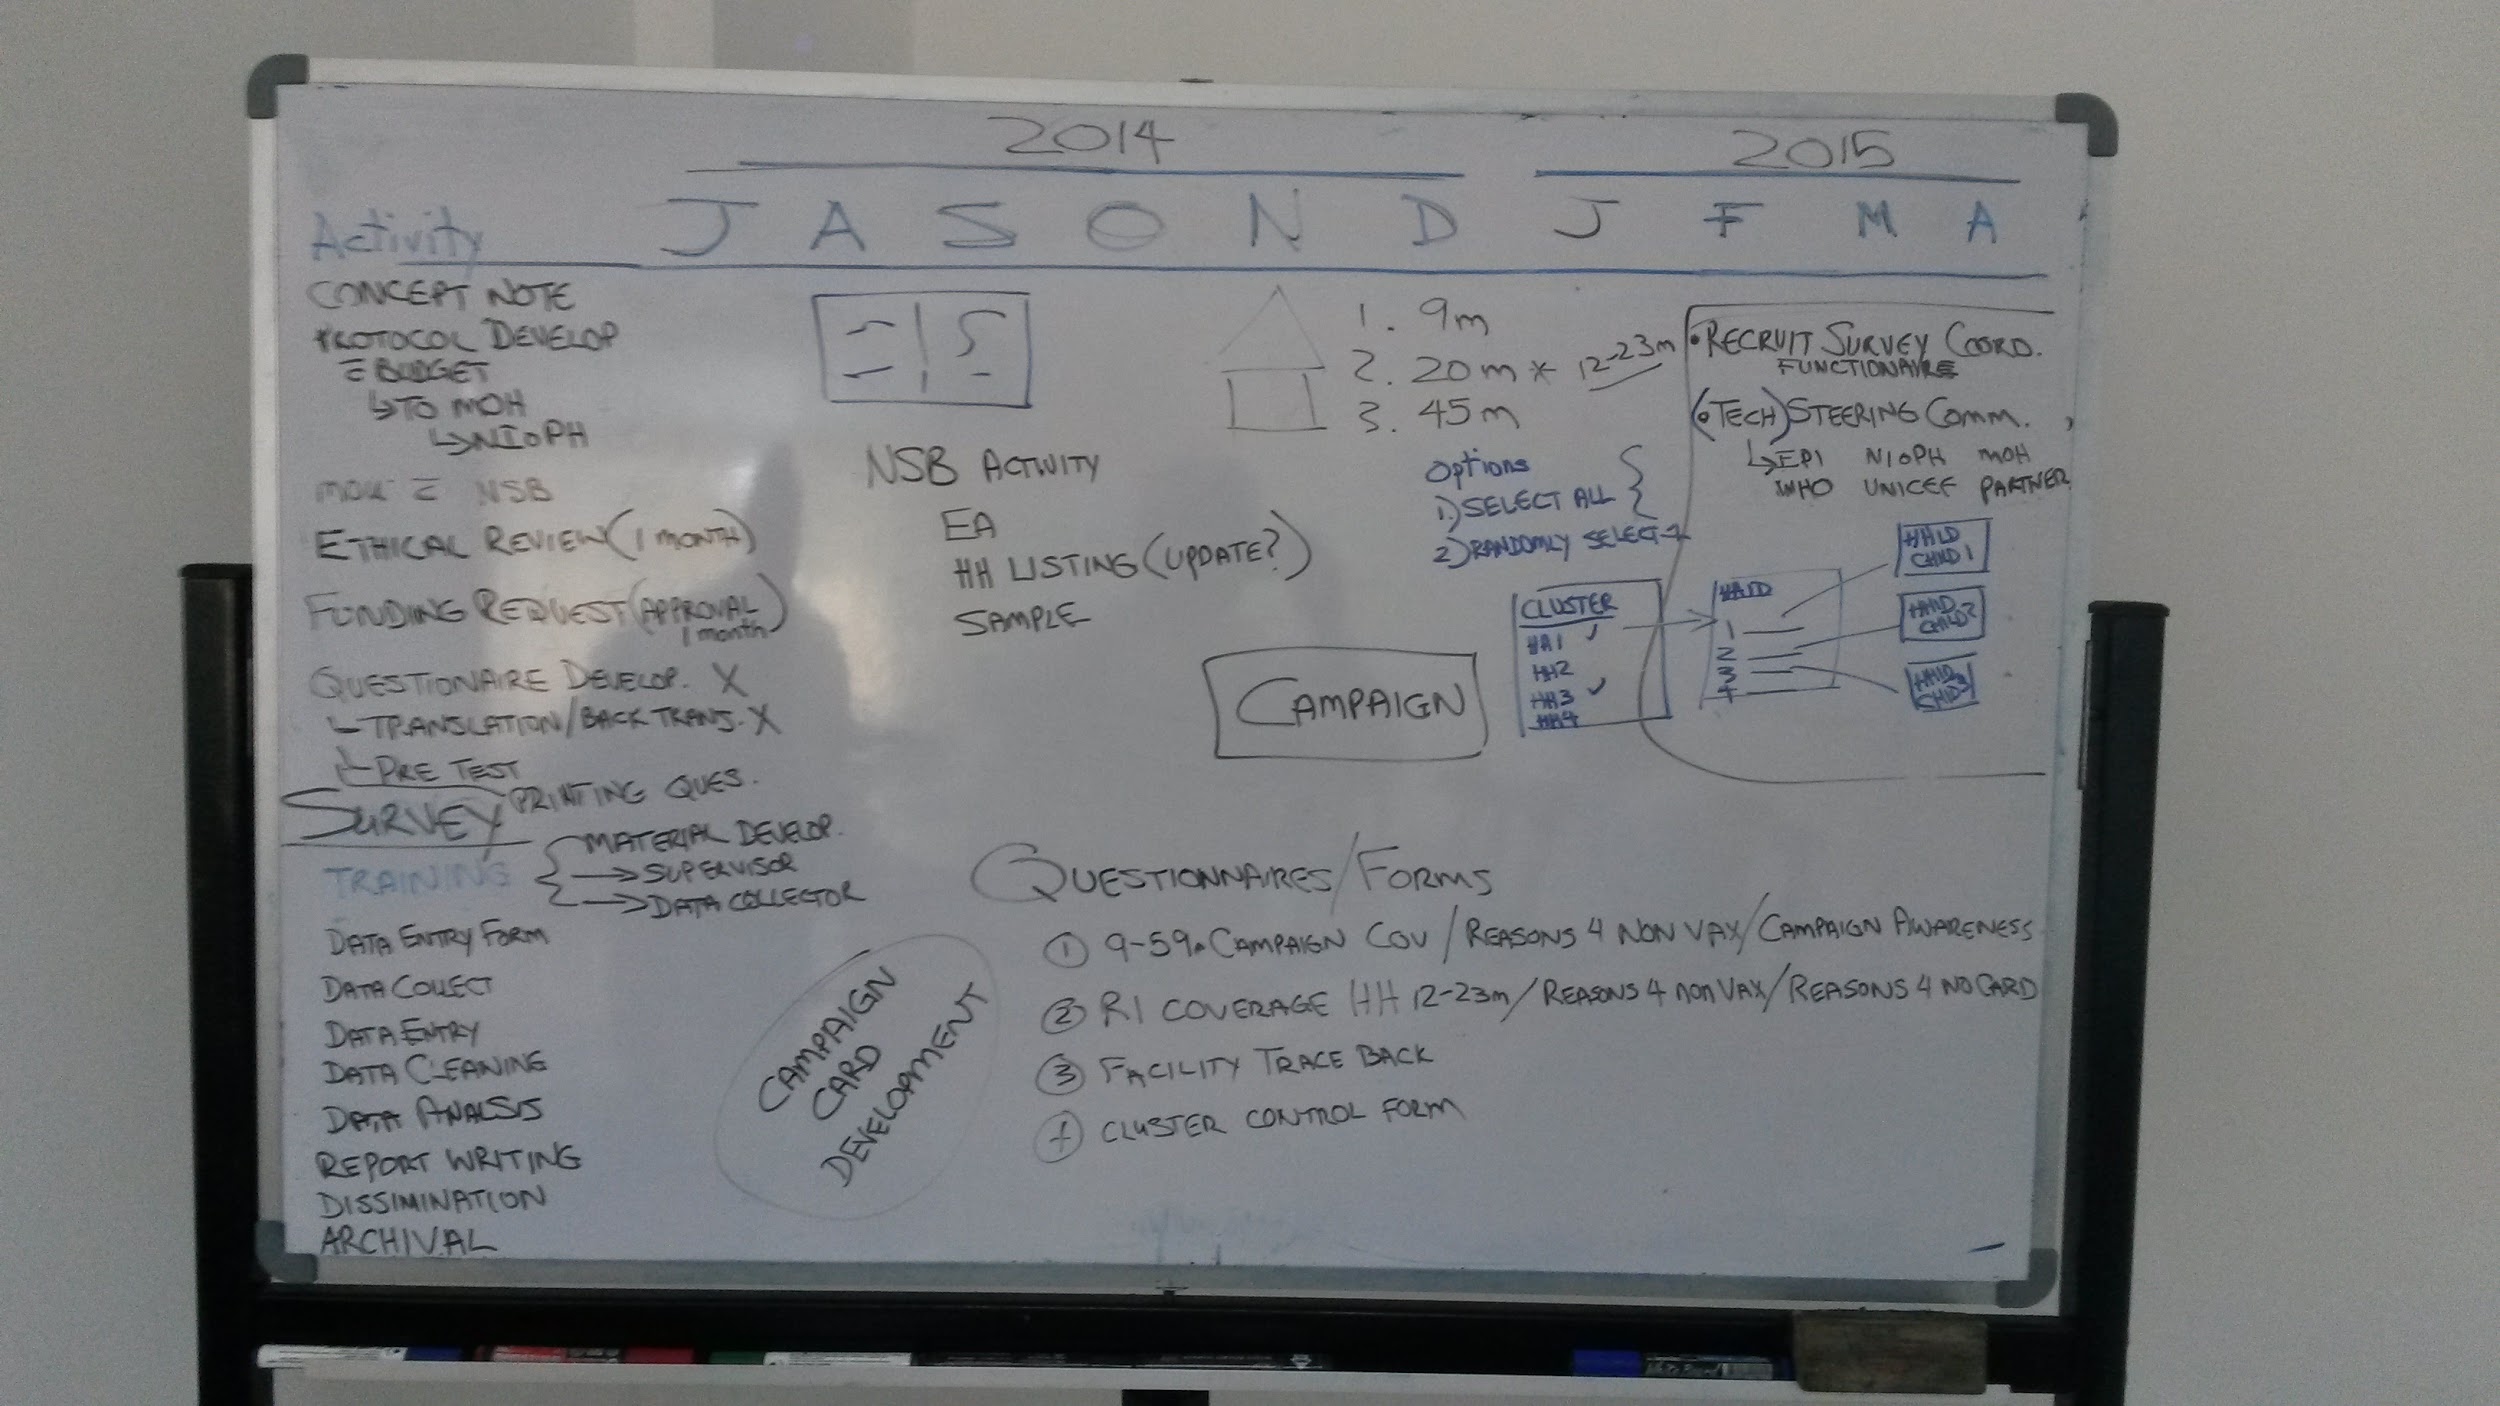 2014 2015
Activity J A S O N D J F M A
CONCEPT NOTE
PROTOCOL DEVELOP
BUDGET
↳TO MOH
↳NIOPH
MOU NSB
ETHICAL REVIEW (1 MONTH)
FUNDING REQUEST (APPROVAL
1 month)
QUESTIONAIRE DEVELOP. X
TRANSLATION/BACK TRANS. X
PRE TEST
PRINTING QUES.
SURVEY
TRAINING
MATERIAL DEVELOP.
→SUPERVISOR
→DATA COLLECTOR
DATA ENTRY FORM
DATA COLLECT
DATA ENTRY
DATA CLEANING
DATA ANALSIS
REPORT WRITING
DISSIMINATION
ARCHIVAL
NSB ACTIVITY
EA
HH LISTING (UPDATE?)
SAMPLE
1. 9m
2. 20m * 12-23m
3. 45m
Options
1) SELECT ALL
2) RANDOMLY SELECT 1
• RECRUIT SURVEY COORD.
FUNCTIONAIRE
(• TECH) STEERING COMM.
↳EPI NIOPH MOH
WHO UNICEF PARTNER
CLUSTER
HH1 ✓
HH2
HH3 ✓
HH4
HHID
1
2
3
4
HHID
CHILD 1
HHID
CHILD 2
HHID
CHID3
CAMPAIGN
QUESTIONNAIRES/FORMS
① 9-59m CAMPAIGN COV / REASONS 4 NON VAX / CAMPAIGN AWARENESS
② RI COVERAGE HH 12-23m / REASONS 4 NON VAX / REASONS 4 NO CARD
③ FACILITY TRACE BACK
④ CLUSTER CONTROL FORM
CAMPAIGN
CARD
DEVELOPMENT